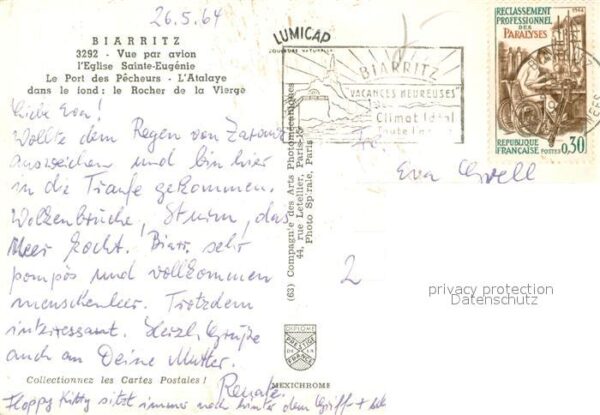 26.5.64
BIARRITZ
3292 - Vue par avion
l'Eglise Sainte-Eugénie
Le Port des Pêcheurs - L'Atalaye
dans le fond : le Rocher de la Vierge
Liebe Eva!
Wollte dem Regen von
ausweichen und bin hier
in die Traufe gekommen.
Wolkenbrüche, Sturm, das
Meer kocht. Biarr. sehr
pompös und vollkommen
menschenleer. Trotzdem
interressant. Herzl. Grüße
auch an Deine Mutter.
Renate.
Collectionnez les Cartes Postales !
Floppy Kitty sitzt immer noch hinter dem Griff +
(63) Compagnie des Arts Photomécaniques
44, rue Letellier, Paris-15
Photo Spirale, Paris
DIPLOME
PRESTIGE
DE LA
FRANCE
MEXICHROME
LUMICAP
COULEURS NATURELLES
BIARRITZ
"VACANCES HEUREUSES"
Climat Idéal
Toute l'an
RECLASSEMENT 1964
PROFESSIONNEL
DES
PARALYSÉS
REPUBLIQUE
FRANÇAISE POSTES 0,30
Fr.
Eva
2
privacy protection
Datenschutz